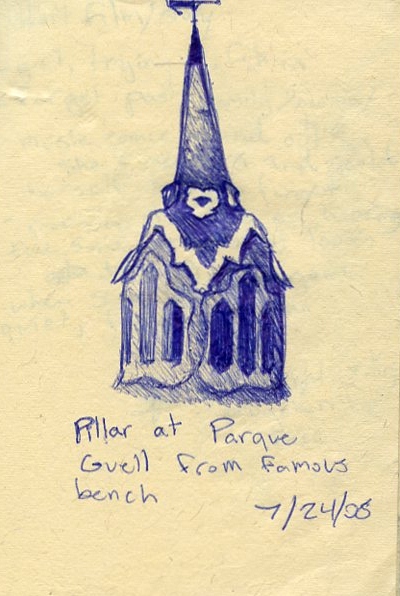 Pillar at Parque
Guell from famous
bench
7/24/08